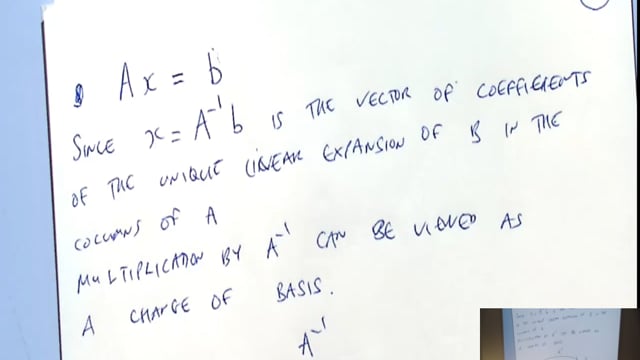 Ax = b
SINCE x = A⁻¹b IS THE VECTOR OF COEFFICIENTS
OF THE UNIQUE LINEAR EXPANSION OF B IN THE
COLUMNS OF A
MULTIPLICATION BY A⁻¹ CAN BE VIEWED AS
A CHANGE OF BASIS.
A⁻¹